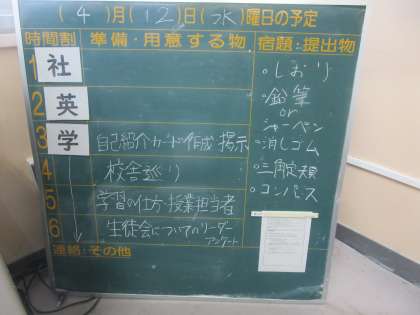 (4)月(12)日(水)曜日の予定
時間割 準備・用意する物 宿題・提出物
1 社
2 英
3 学 自己紹介カード作成 掲示
4 校舎巡り
5 学習の仕方・授業担当者
6 生徒会についてのリーダー
アンケート
・しおり
・鉛筆
or
シャーペン
・消しゴム
・三角定規
・コンパス
連絡・その他